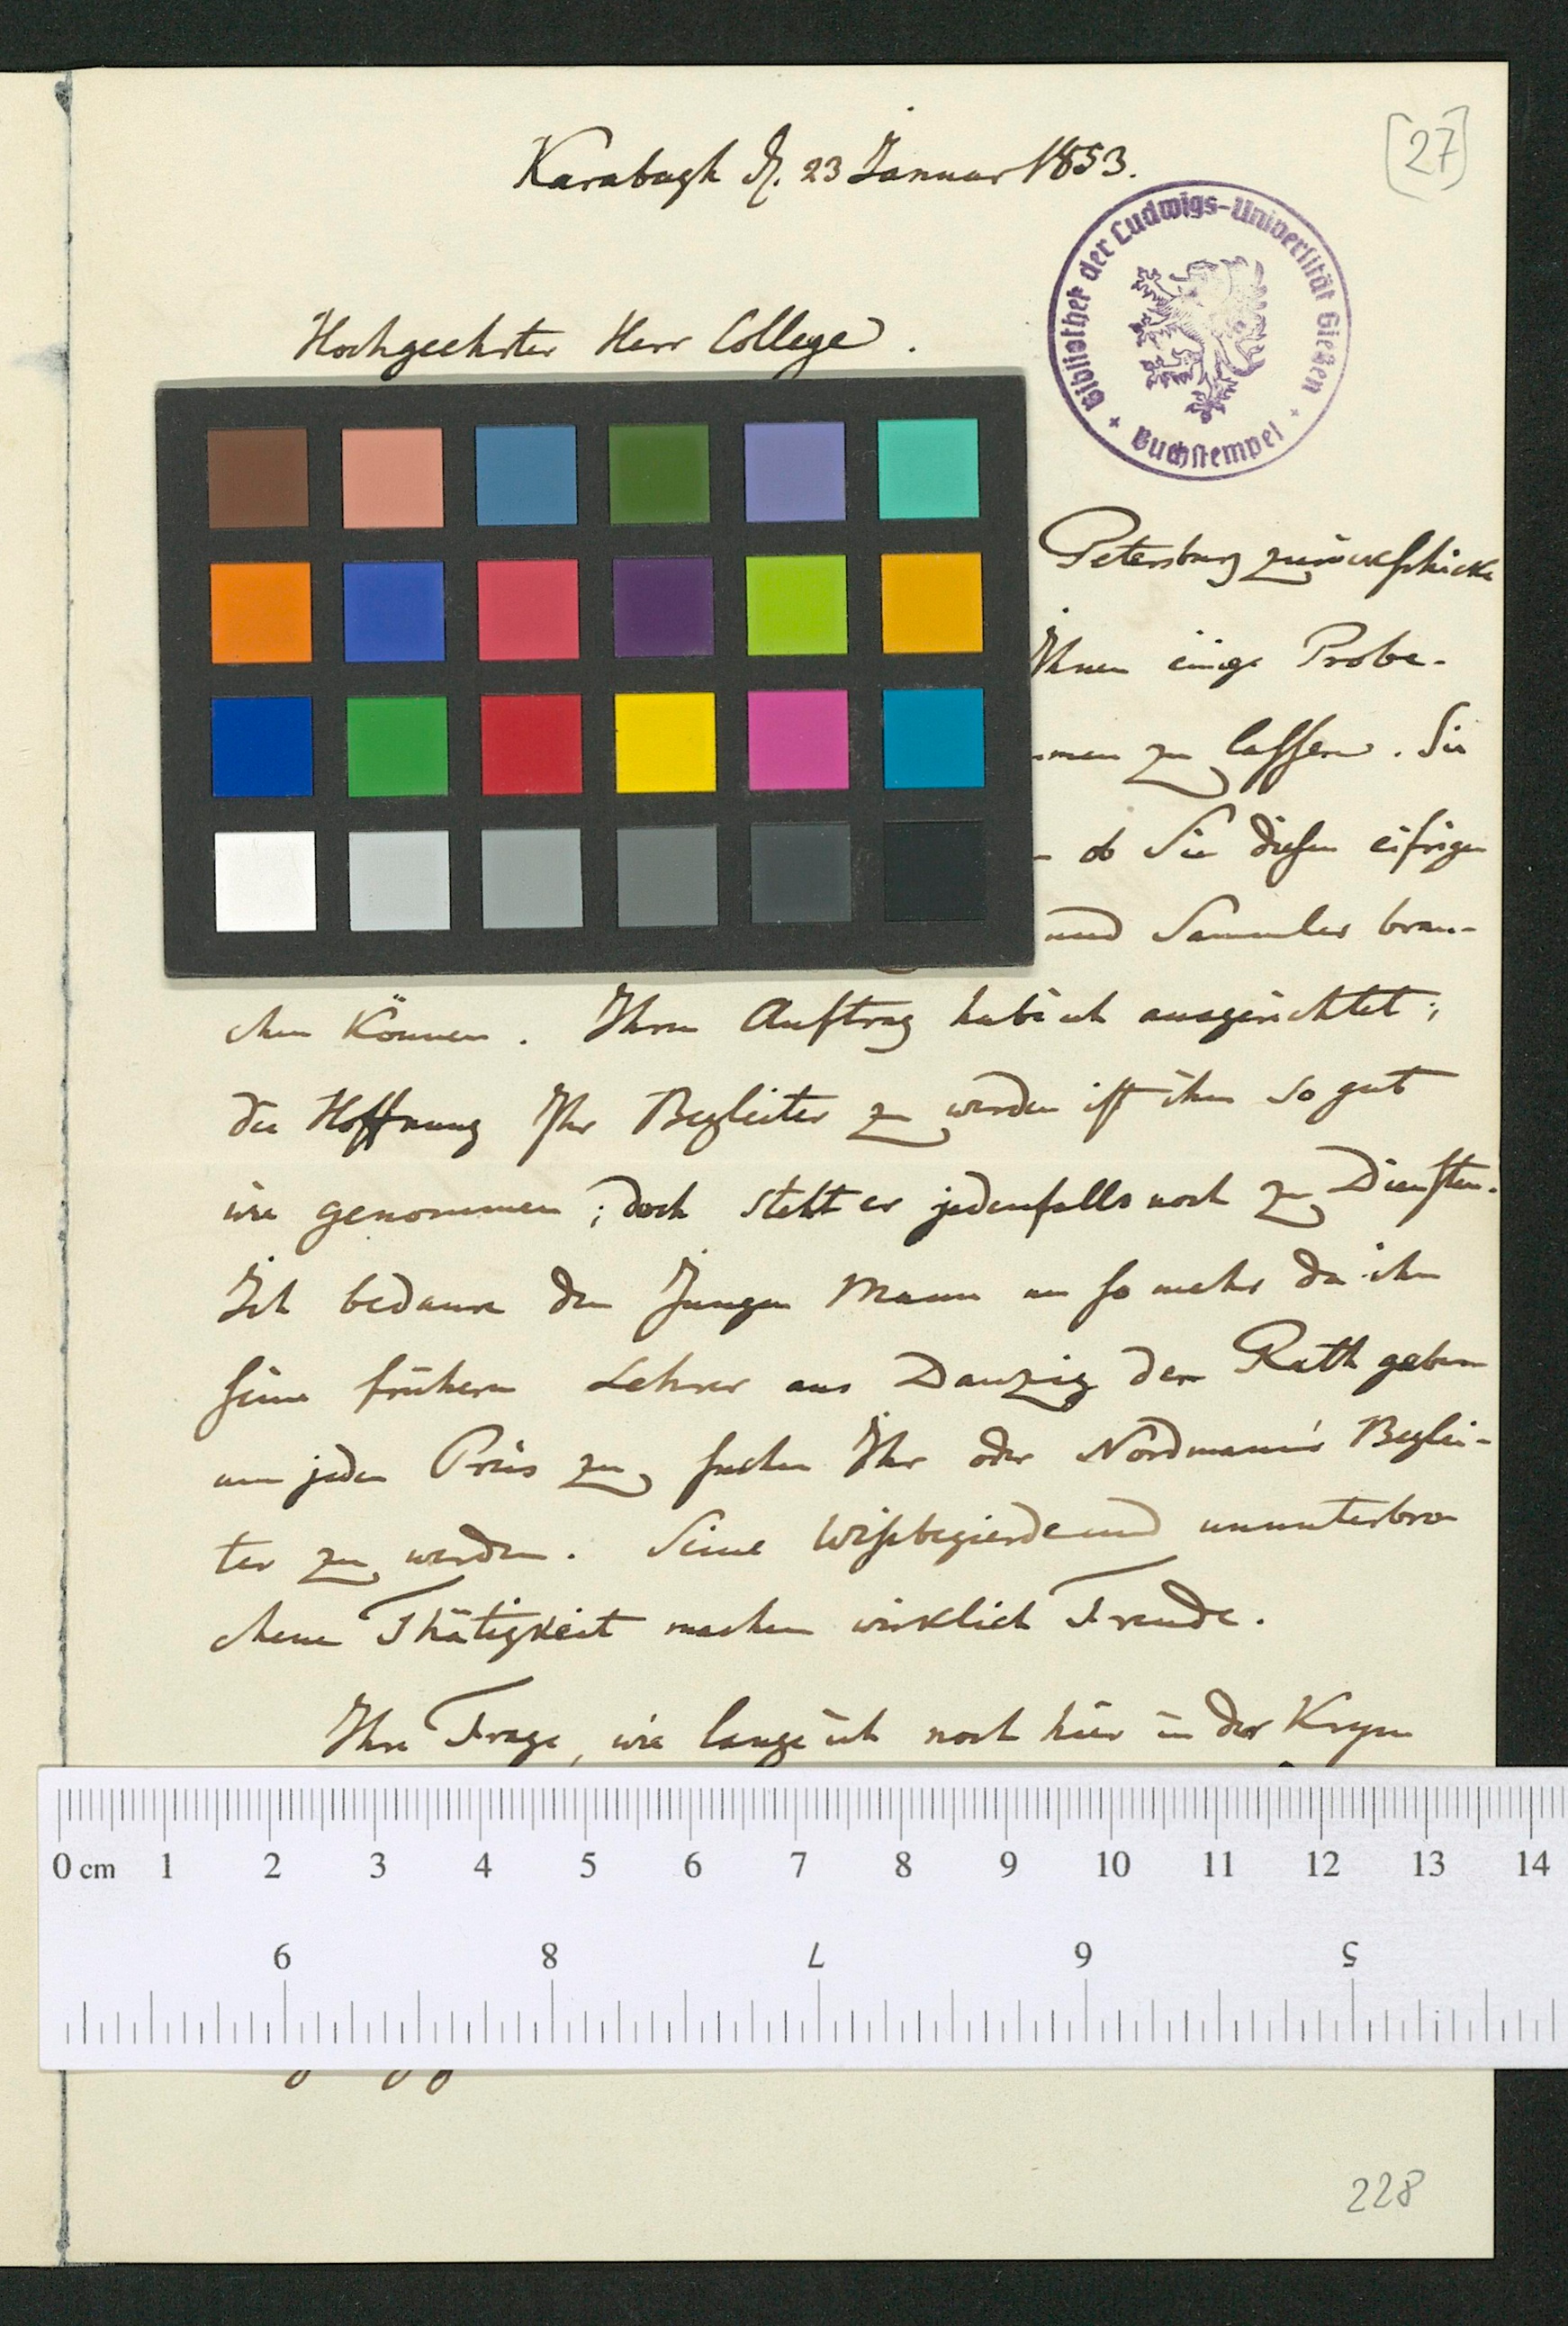 [27]
Karabagh d. 23 Januar 1853.
Bibliothek der Ludwigs-Universität Gießen
Buchstempel
Hochgeehrter Herr College.
Petersburg zurückschicke
Ihnen einige Probe-
men zu lassen. Sie
ob Sie diesen eifrigen
und Sammler brau-
chen können. Ihren Auftrag habe ich ausgerichtet;
die Hoffnung Ihr Begleiter zu werden ist ihm so gut
wie genommen; doch steht er jedenfalls noch zu Diensten.
Ich bedaure den jungen Mann um so mehr da ihm
seine frühern Lehrer aus Danzig den Rath geben
um jeden Preis zu suchen Ihr oder Nordmann's Beglei-
ter zu werden. Seine Wißbegierde und ununterbro
chene Thätigkeit machen wirklich Freude.
Ihre Frage, wie lange ich noch hier in der Krym
0 cm 1 2 3 4 5 6 7 8 9 10 11 12 13 14
9 8 7 6 5
228